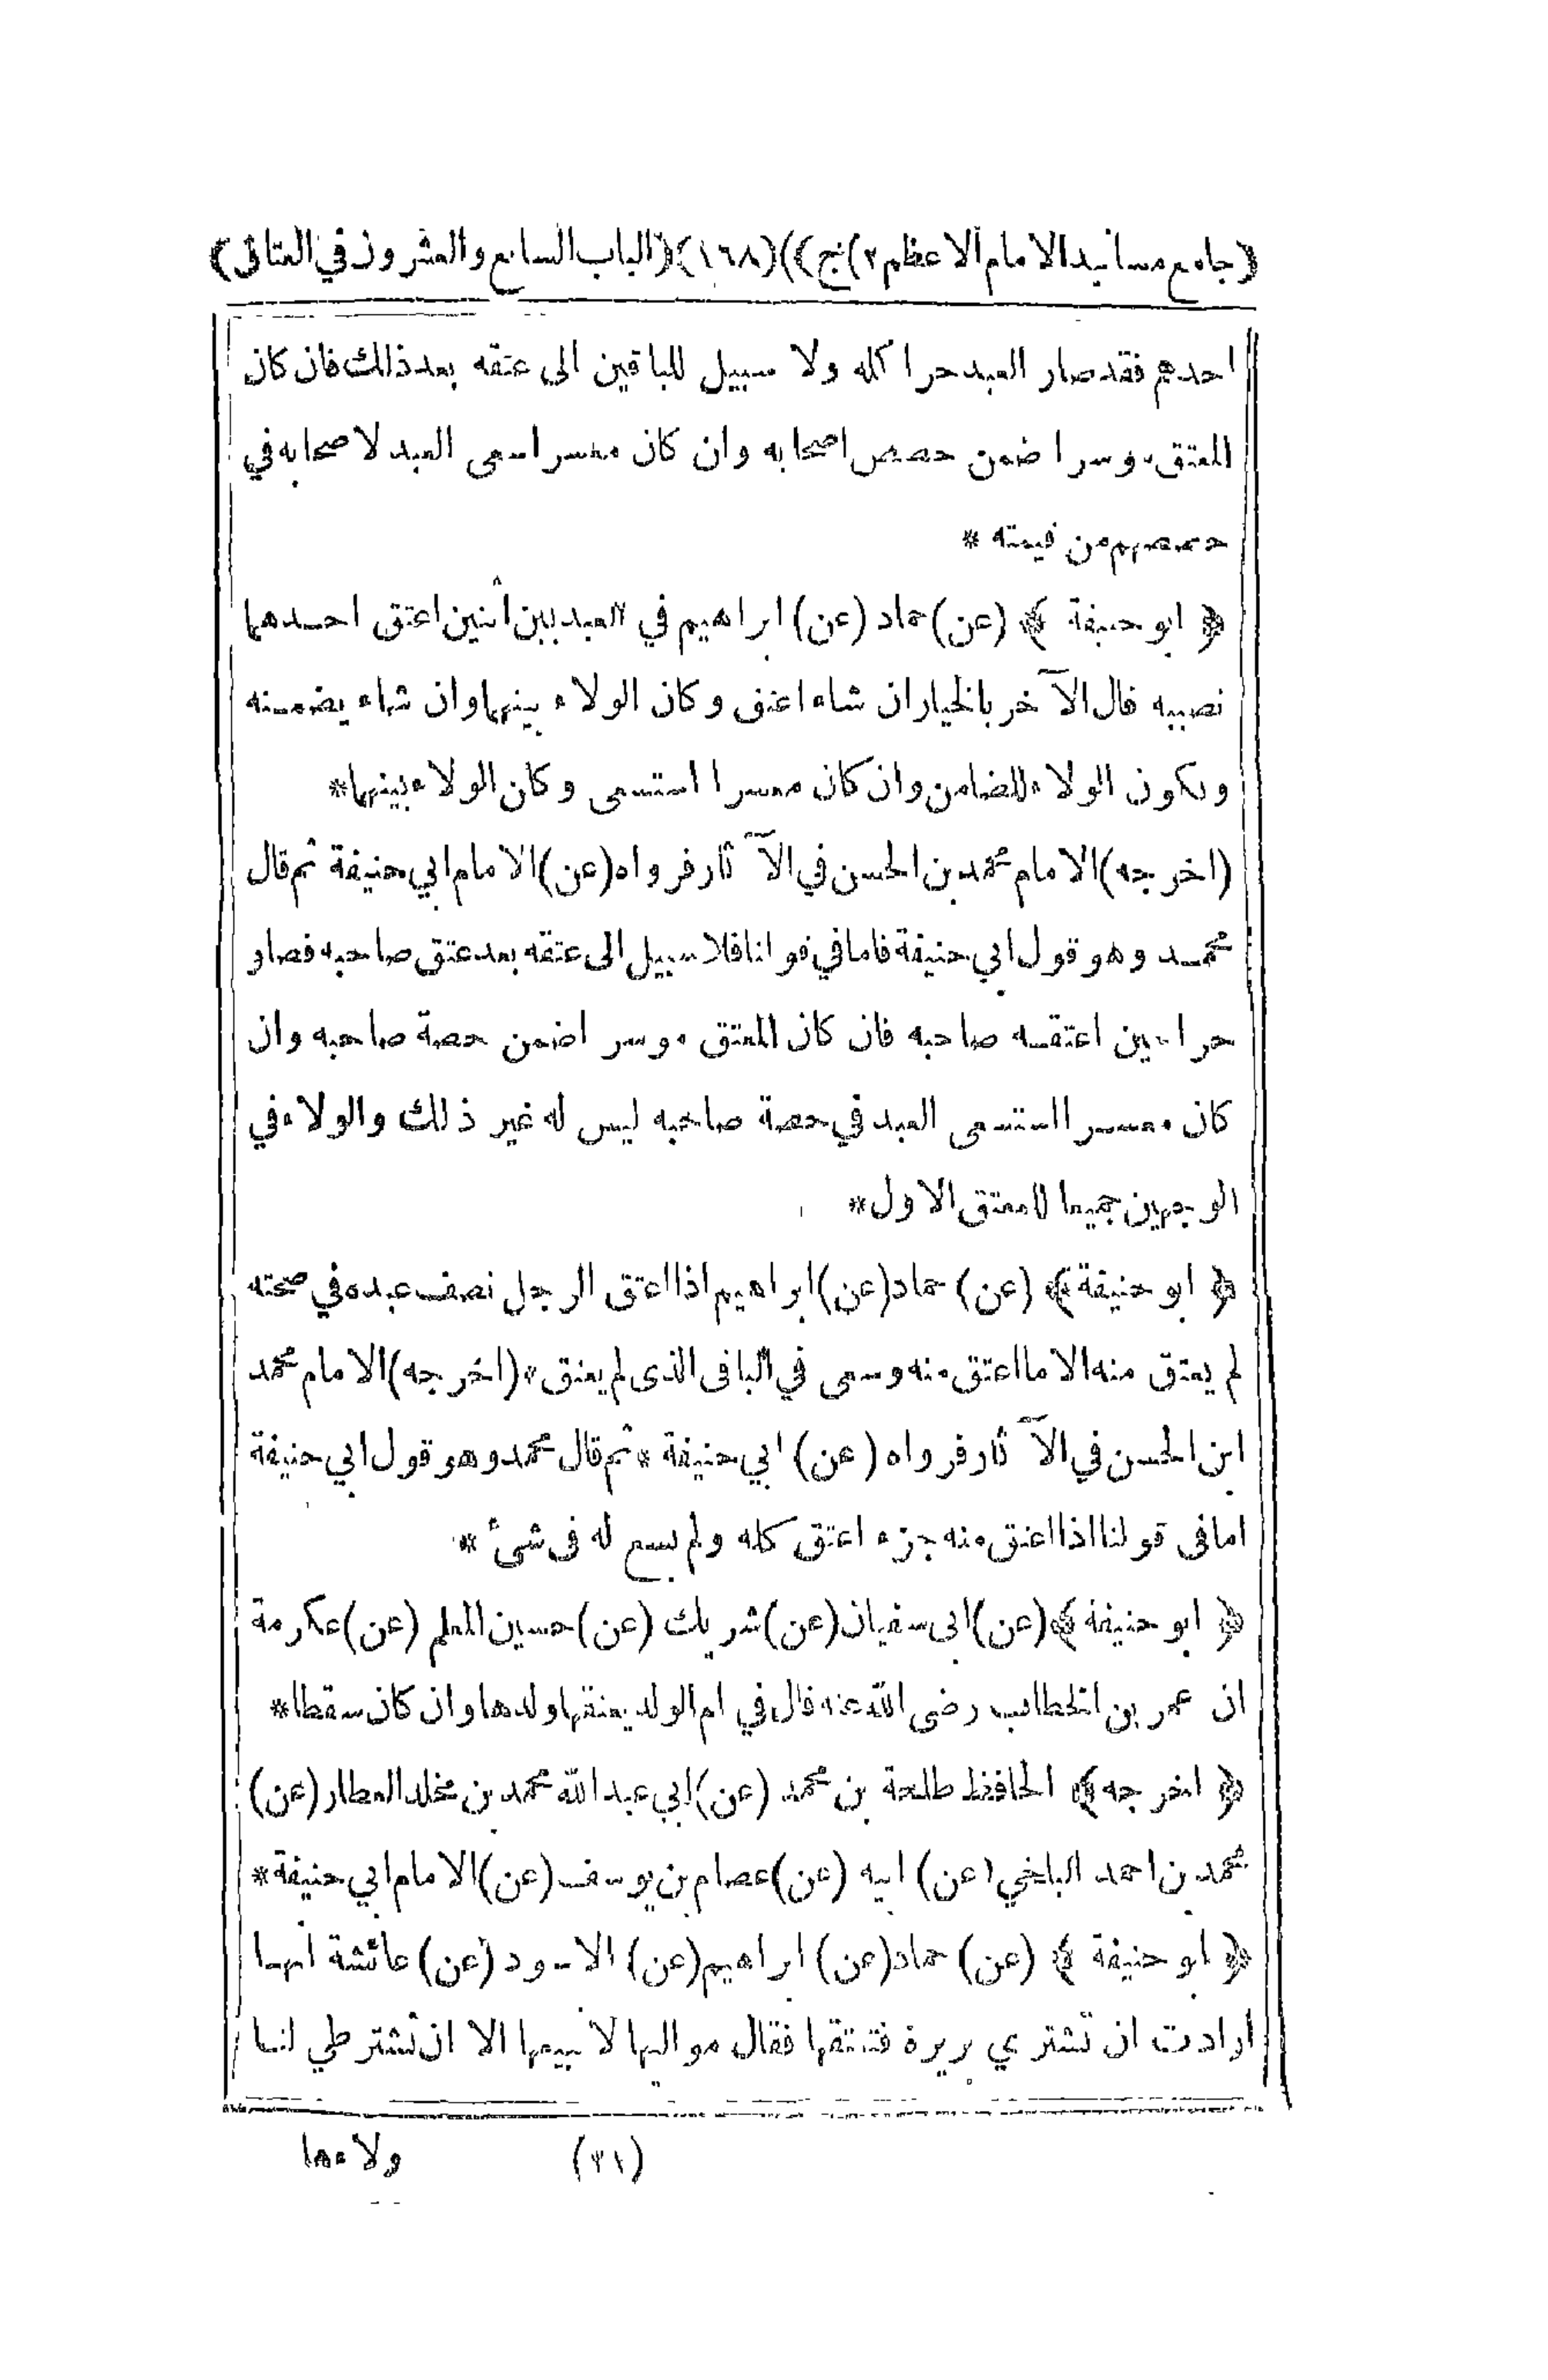 (جامع مسانيد الامام الاعظم ٢) ج)) (١٦٨) (الباب السابع والعشرون في العتاق)
احدهم فقد صار العبد حرا كله ولا سبيل للباقين الى عتقه بعد ذلك فان كان
المعتق موسرا ضمن حصص اصحابه وان كان معسرا سعى العبد لاصحابه في
حصصهم من قيمته *
﴿ ابو حنيفة ﴾ (عن) حماد (عن) ابراهيم في العبد بين أثنين اعتق احدهما
نصيبه قال الآخر بالخيار ان شاء اعتق وكان الولاء بينهما وان شاء يضمنه
ويكون الولاء للضامن وان كان معسرا استسعى وكان الولاء بينهما *
(اخرجه) الامام محمد بن الحسن في الآثار فرواه (عن) الامام ابي حنيفة ثم قال
محمد وهو قول ابي حنيفة فاما في قولنا فلا سبيل الى عتقه بعد عتق صاحبه فصار
حرا حين اعتقه صاحبه فان كان المعتق موسرا ضمن حصة صاحبه وان
كان معسرا استسعى العبد في حصة صاحبه ليس له غير ذلك والولاء في
الوجهين جميعا للمعتق الاول *
﴿ ابو حنيفة ﴾ (عن) حماد (عن) ابراهيم اذا اعتق الرجل نصف عبده في صحته
لم يعتق منه الا ما اعتق منه وسعى في الباقى الذى لم يعتق * (اخرجه) الامام محمد
ابن الحسن في الآثار فرواه (عن) ابي حنيفة * ثم قال محمد وهو قول ابي حنيفة
اما فى قولنا اذا اعتق منه جزء اعتق كله ولم يسع له فى شئ *
﴿ ابو حنيفة ﴾ (عن) ابى سفيان (عن) شريك (عن) حسين المعلم (عن) عكرمة
ان عمر بن الخطاب رضى الله عنه قال في ام الولد يعتقها ولدها وان كان سقطا *
﴿ اخرجه ﴾ الحافظ طلحة بن محمد (عن) ابي عبد الله محمد بن مخلد العطار (عن)
محمد بن احمد البلخي (عن) ابيه (عن) عصام بن يوسف (عن) الامام ابي حنيفة *
﴿ ابو حنيفة ﴾ (عن) حماد (عن) ابراهيم (عن) الاسود (عن) عائشة انها
ارادت ان تشتري بريرة فتعتقها فقال مواليها لا نبيعها الا ان تشترطي لنا
(٢١) ولاءها